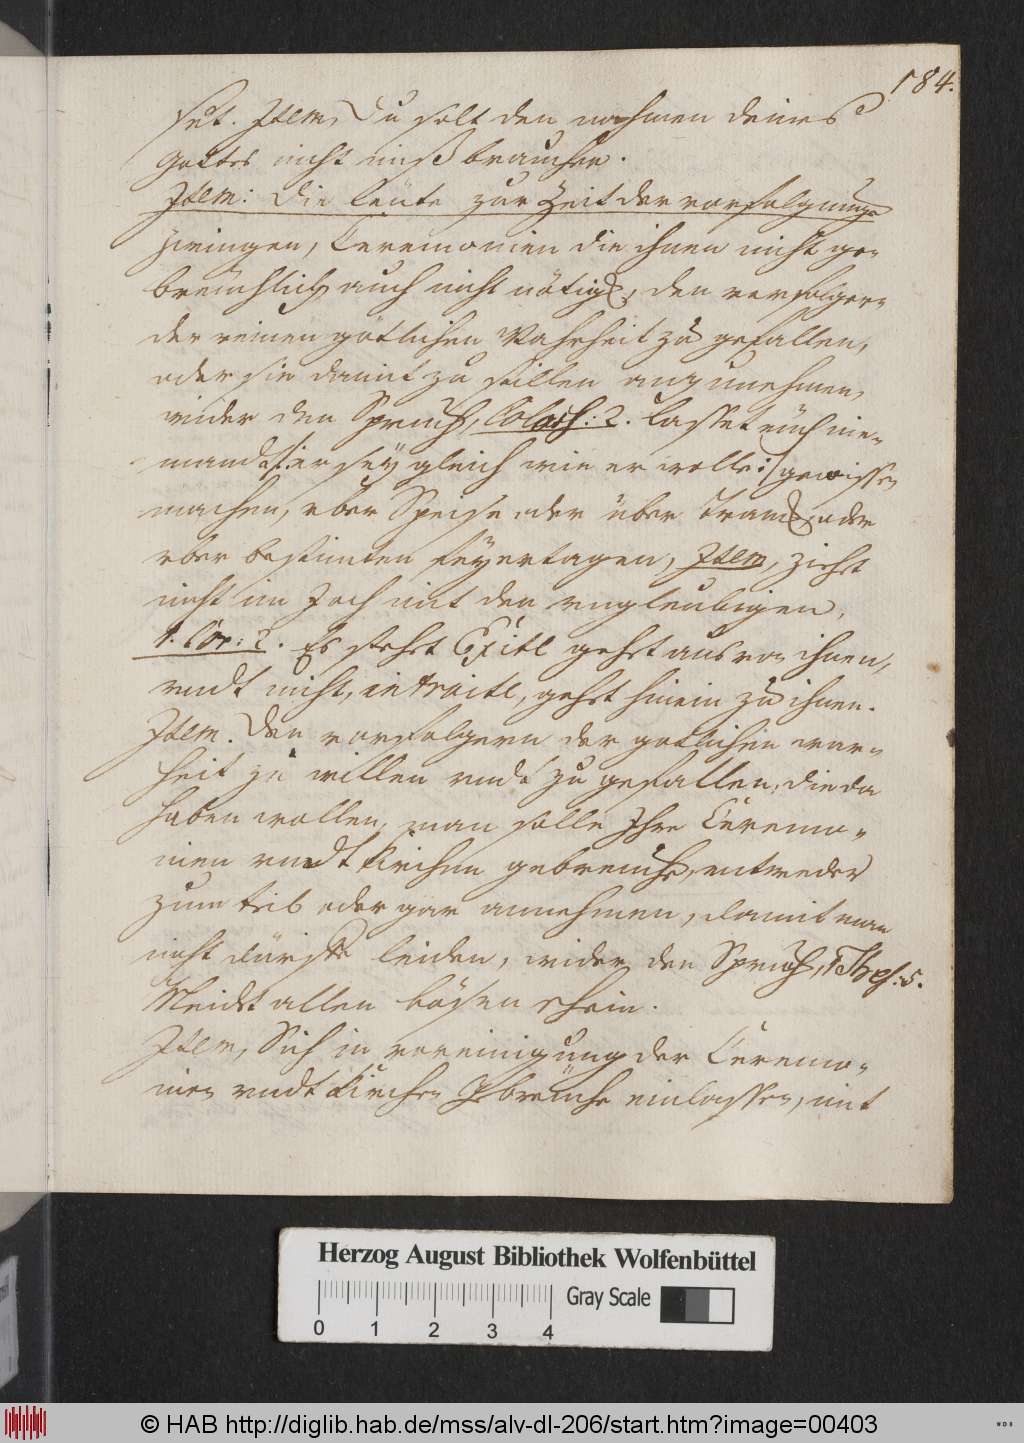 184.
set. Item, Du solt den nahmen deines
Gottes nicht mißbrauchen.
Item: Die leüte zur Zeit der vorfolgunge
zwingen, Ceremonien die ihnen nicht ge-
breuchlich auch nicht nötig, den verfolgern
der reinen götlichen Wahrheit zu gefallen,
oder sie damit zu stillen anzunehmen,
wider den Spruch, Coloss: 2. lasset eüch nie-
mandt /: er sey gleich wie er wolle :/ gewissen
machen, vber Speise oder über tranck, oder
vber bestimten feyertagen, Item, ziehet
nicht im Joch mit den vngleubigen,
1. Cor: 2. Es stehet Exite gehet aus von ihnen,
vndt nicht, intraite, gehet hinein zu ihnen.
Item. Den vorfolgern der gotlichen war-
heit zu willen vndt zu gefallen, die da
haben wollen, man solle Ihre Ceremo-
nien vndt Kirchen gebreuche, entweder
zum teil oder gar annehmen, damit man
nicht dürffte leiden, wider den Spruch, 1 Thes: 5.
Meidet allen bösen schein.
Item, Sich in vereinigung der Ceremo-
nien vndt Kirchen Gebreüche einlassen, mit
Herzog August Bibliothek Wolfenbüttel
0 1 2 3 4
Gray Scale
© HAB http://diglib.hab.de/mss/alv-dl-206/start.htm?image=00403